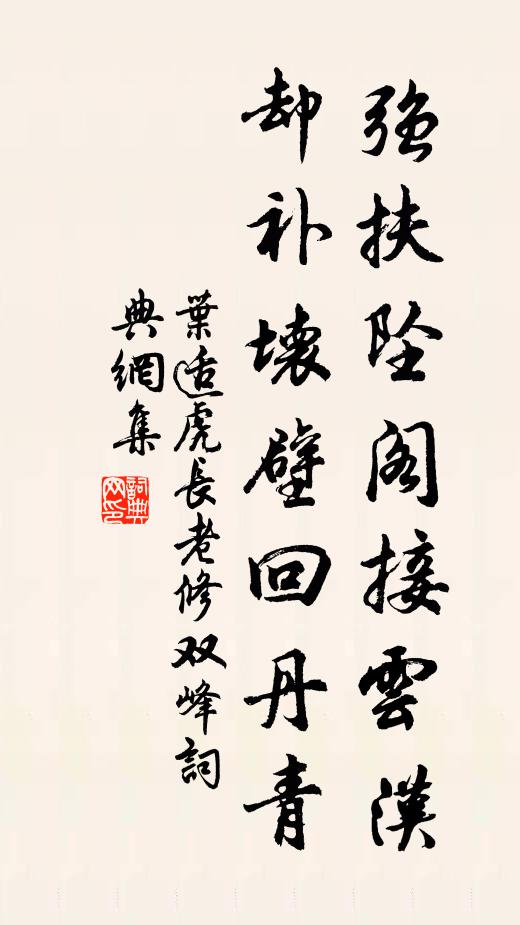 强扶坠阁接雲漢
却补壊壁回丹青
葉适虎長老修双峰詞
典網集
詞典网印